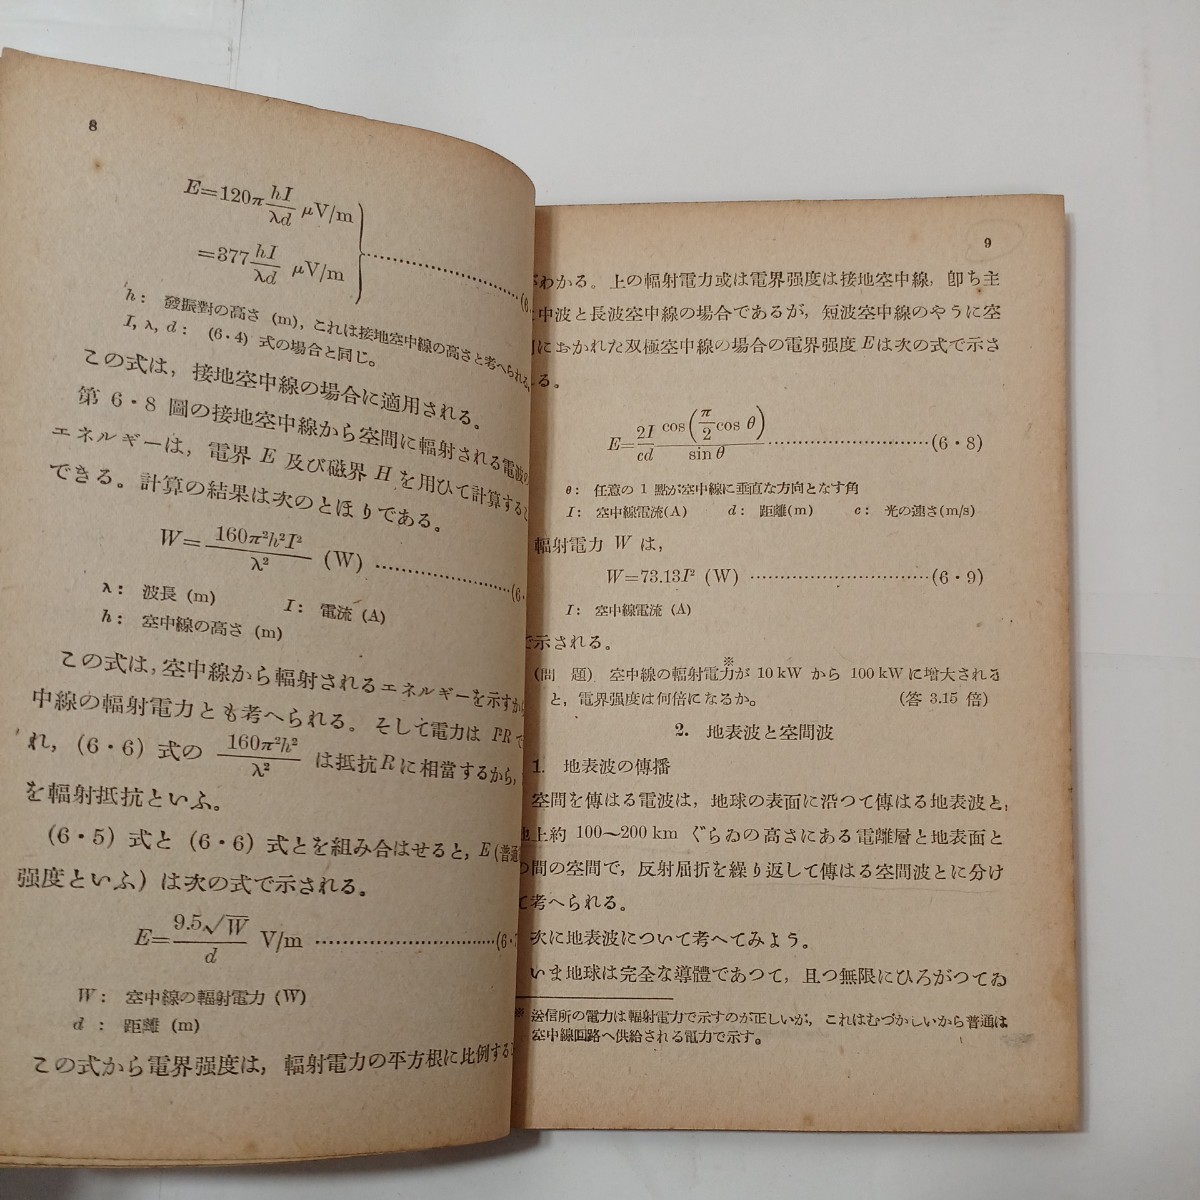 8
E=120π hI/λd μV/m
=377 hI/λd μV/m ……………(6
h: 發振對の高さ (m), これは接地空中線の高さと考へられる。
I, λ, d: (6・4) 式の場合と同じ。
この式は, 接地空中線の場合に適用される。
第 6・8 圖の接地空中線から空間に輻射される電波の
エネルギーは, 電界 E 及び磁界 H を用ひて計算すると
できる。計算の結果は次のとほりである。
W= 160π²h²I²/λ² (W) ……………(6・
λ: 波長 (m)  I: 電流 (A)
h: 空中線の高さ (m)
この式は, 空中線から輻射されるエネルギーを示すから
中線の輻射電力とも考へられる。そして電力は I²R で
れ, (6・6) 式の 160π²h²/λ² は抵抗Rに相當するから,
を輻射抵抗といふ。
(6・5) 式と (6・6) 式とを組み合はせると, E (普通
强度といふ) は次の式で示される。
E= 9.5√W/d V/m ……………(6・7
W: 空中線の輻射電力 (W)
d : 距離 (m)
この式から電界强度は, 輻射電力の平方根に比例する
9
がわかる。上の輻射電力或は電界强度は接地空中線, 卽ち主
中波と長波空中線の場合であるが, 短波空中線のやうに空
におかれた双極空中線の場合の電界强度 E は次の式で示さ
る。
E= 2I/cd cos(π/2 cos θ)/sin θ ……………(6・8)
θ: 任意の 1 點が空中線に垂直な方向となす角
I: 空中線電流(A)  d: 距離(m)  c: 光の速さ(m/s)
輻射電力 W は,
W=73.13I² (W) ……………(6・9)
I: 空中線電流 (A)
で示される。
(問 題) 空中線の輻射電力※が 10 kW から 100 kW に増大される
と, 電界强度は何倍になるか。 (答 3.15 倍)
2. 地表波と空間波
1. 地表波の傳播
空間を傳はる電波は, 地球の表面に沿つて傳はる地表波と,
地上約 100〜200 km ぐらゐの高さにある電離層と地表面と
の間の空間で, 反射屈折を繰り返して傳はる空間波とに分け
て考へられる。
次に地表波について考へてみよう。
いま地球は完全な導體であつて, 且つ無限にひろがつてゐ
※ 送信所の電力は輻射電力で示すのが正しいが, これはむづかしいから普通は
空中線回路へ供給される電力で示す。